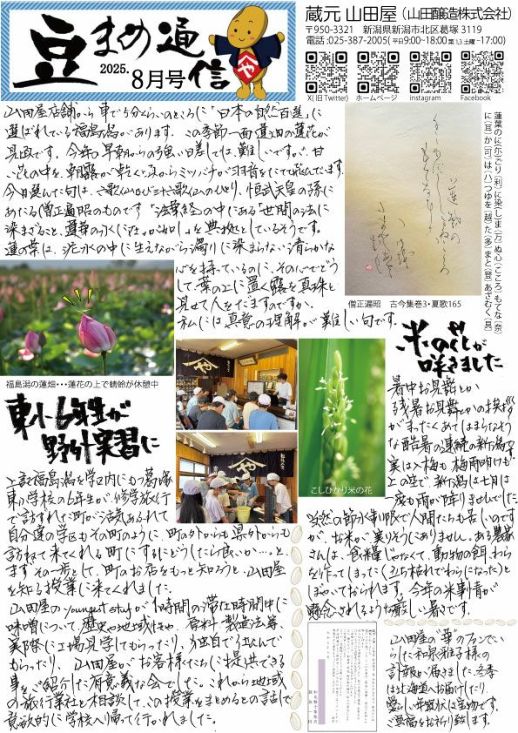 豆まめ通信
2025.
8月号
蔵元 山田屋（山田醸造株式会社）
〒950-3321 新潟県新潟市北区葛塚 3119
電話：025-387-2005（平日9:00-18:00 第1,3 土曜 -17:00）
X(旧 Twitter)
ホームページ
instagram
Facebook
山田屋店舗から車で5分くらいのところに「日本の自然百選」に
選ばれている福島潟があります。この季節一面蓮の蓮花が
見頃です。今年の早朝からの強い日差しでは、難しいです。甘
い花の中を、朝露が乾くころからミツバチが羽音をたてて飛んでます。
にあたる僧正遍昭のものです「法華経の中にある世間の法に
染まること、蓮華の水に
蓮の葉は、泥水の中に生えながら濁りに染まらない清らかな
心を持っているのに、そのこころでどう
して、葉の上に置く露を真珠と
見せて人をだますのですか。
私には真覚の理解が難しい句です。
僧正遍昭 古今集巻3・夏歌165
福島潟の蓮畑・・・蓮花の上で蜻蛉が休憩中
東小6年生が
野外実習に
上記福島潟を学区内にもつ葛塚
東小学校の6年生が修学旅行
で訪ずれた町が活気あふれて
自分達の学区もその町のように、町の外からも県外からも
訪ねて来てくれる町にするにはどうしたら良いか…と。
まずその一歩として、町のお店をもっと知ろうと山田屋
を知る授業に来てくれました。
山田屋のyoungest studyが1時間の滞在時間中に
味噌について歴史や地域性や、原料・製造法等
実際に工場見学してもらったり、独自で仕込んで
もらったり、山田屋がお客様たちに提供できる
事をご紹介した有意義な会でした。これから地域
の旅行業社と相談して、この授業をまとめるとの話で
意欲的に学校へ帰って行かれました。
こしひかり米の花
米の花が
咲きました
暑中お見舞とか
残暑お見舞とかの挨拶
がまったくあてはまらないような
酷暑の連続の新潟です。
実は入梅も梅雨明けも
上の空で新潟は七月は
一度も雨が降りませんでした。
当然の節水制限で人間たちも苦しいのです
が、お米が実りそうにありません。ある農家
さんは、食糧じゃなくて、動物の餌、わら
を作ってしまった（立ち枯れてわらになった）と
ぼやいております。今年の米事情が
懸念されるような厳しい暑さです。
山田屋の華のファンでい
らした和泉雅子様の
訃報が届きました。冬季
は北海道へお届けしたり、
愛らしい年賀状は宝物です。
ご冥福をお祈り致します。